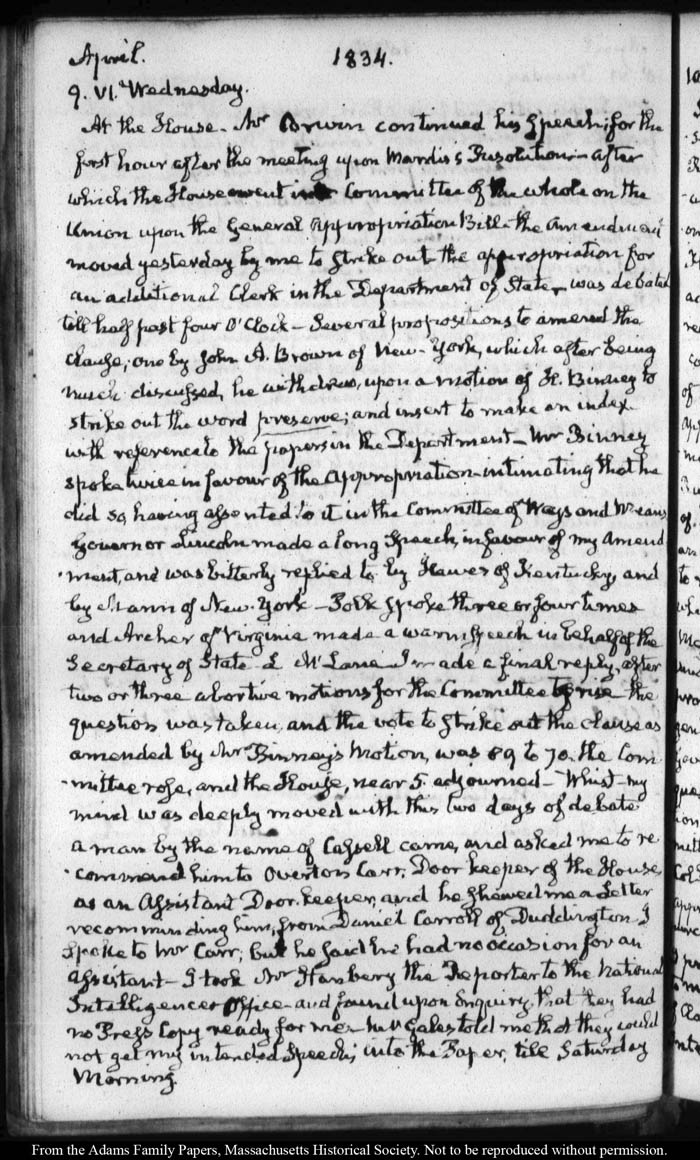 April. 1834.
9. VI. Wednesday.
At the House. Mr Brown continued his Speech for the
first hour after the meeting upon Mardis's Resolution — after
which the House went into Committee of the whole on the
Union upon the General Appropriation Bill — the Amendment
moved yesterday by me to strike out the appropriation for
an additional Clerk in the Department of State, was debated
till half past four O'Clock — Several propositions to amend the
Clause; one by John A. Brown of New-York, which after being
much discussed, he withdrew, upon a motion of H. Binney to
strike out the word preserve; and insert to make an index
with reference to the papers in the Department — Mr Binney
spoke twice in favour of the Appropriation — intimating that he
did so, having assented to it in the Committee of Ways and Means
Governor Lincoln made a long Speech, in favour of my Amend
ment, and was bitterly replied to by Hawes of Kentucky, and
by Mann of New-York — Polk spoke three or four times
and Archer of Virginia made a warm speech in behalf of the
Secretary of State L McLane — I made a final reply, after
two or three abortive motions for the Committee to rise the
question was taken, and the vote to strike out the clause as
amended by Mr Binney's Motion, was 89 to 70. the Com
mittee rose, and the House, near 5. adjourned — Whilst my
mind was deeply moved with this two days of debate
a man by the name of Cassell came, and asked me to re
commend him to Overton Carr, Door keeper of the House,
as an Assistant Door-keeper, and he shewed me a Letter
recommending him, from Daniel Carroll of Duddington I
spoke to Mr Carr; but he said he had no occasion for an
Assistant — I took Mr Stansbery the Reporter to the National
Intelligencer Office — and found upon Enquiry, that they had
no Press Copy ready for me — Mr Gales told me that they could
not get my intended Speech, into the Paper, till Saturday
Morning.
From the Adams Family Papers, Massachusetts Historical Society. Not to be reproduced without permission.